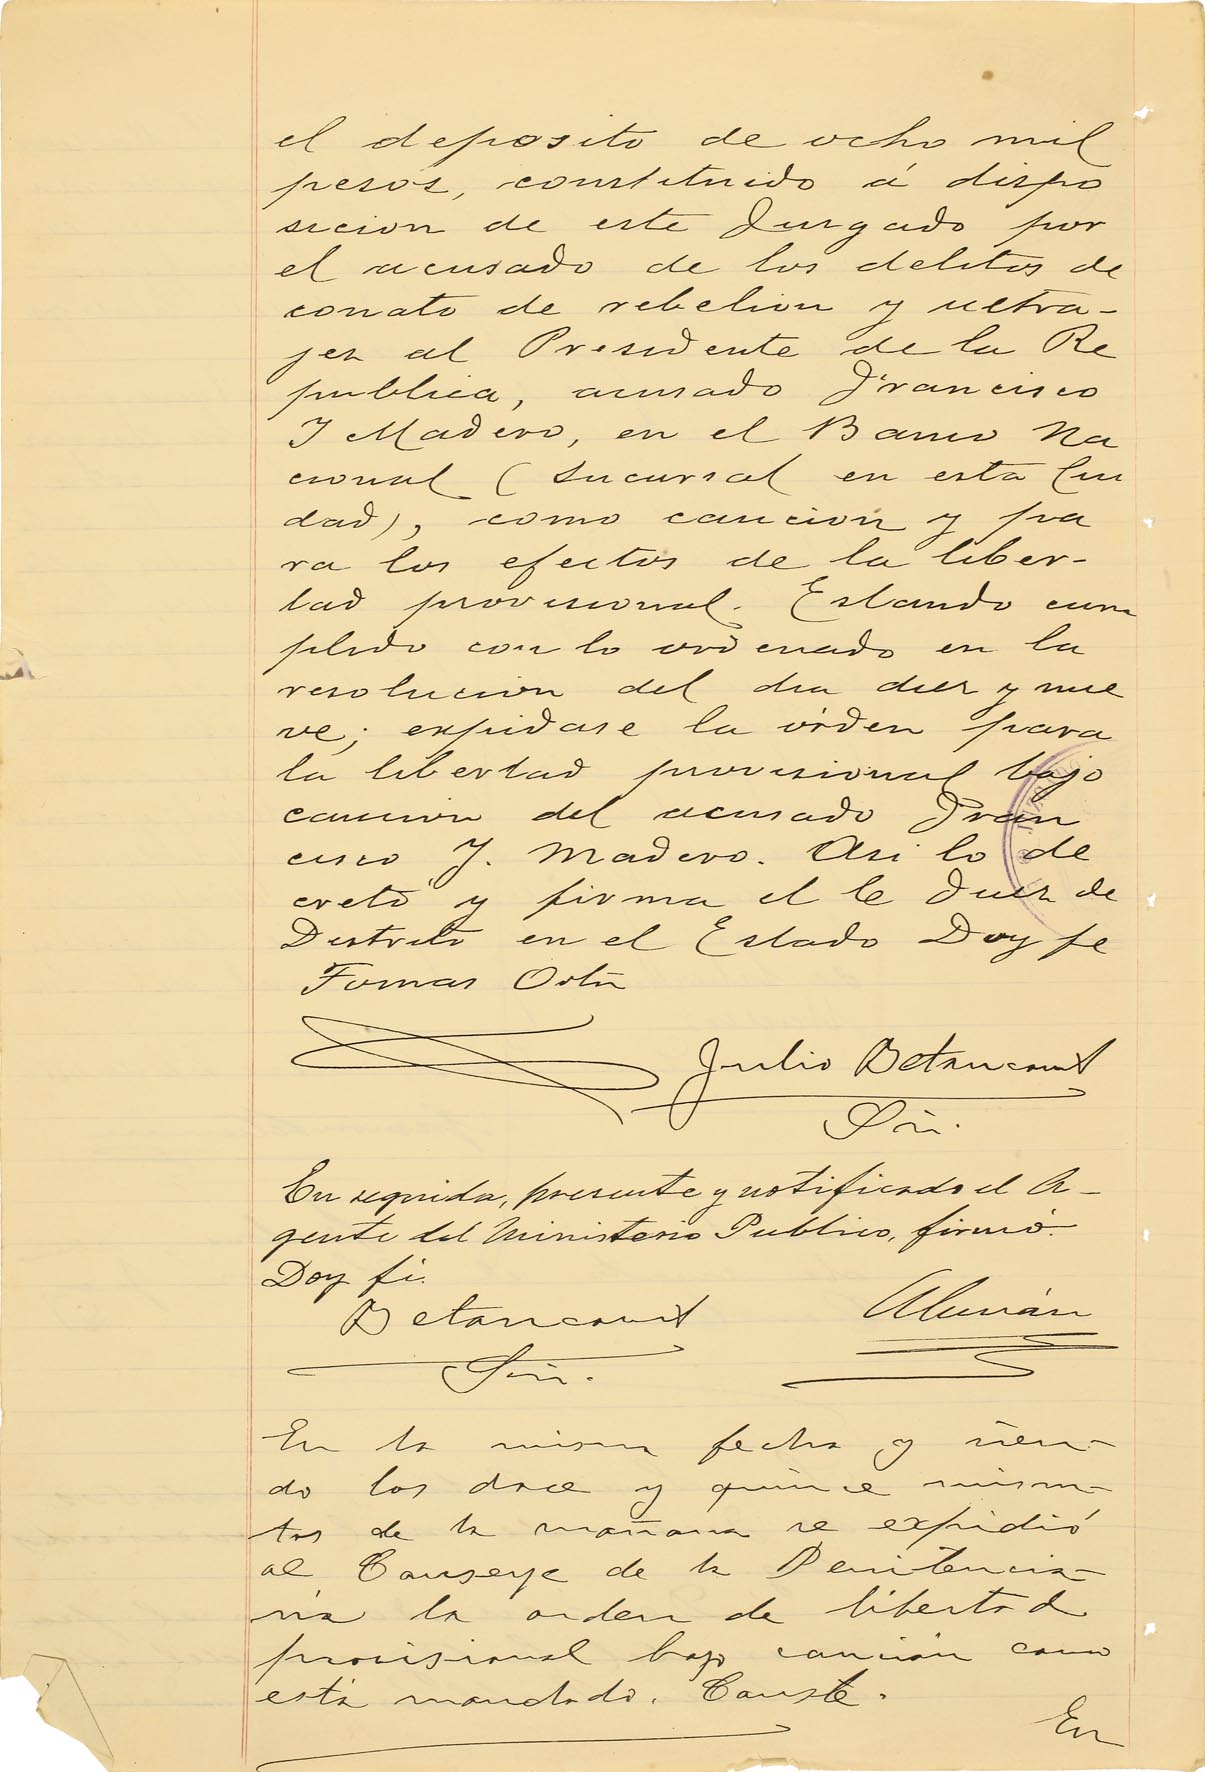 el deposito de ocho mil
pesos, constituido á dispo
sicion de este Juzgado por
el acusado de los delitos de
conato de rebelion y ultra-
jes al Presidente de la Re
publica, acusado Francisco
I Madero, en el Banco Na
cional (Sucursal en esta Ciu
dad), como caucion y pa
ra los efectos de la liber-
tad provisional. Estando cum
plido con lo ordenado en la
resolucion del dia diez y nue
ve; expidase la órden para
la libertad provisional bajo
caucion del acusado Fran
cisco Y. Madero. Asi lo de
cretó y firma el C Juez de
Distrito en el Estado Doy fe
Tomas Ortiz
Julio Betancourt
Srio.
En seguida, presente y notificado el A-
gente del Ministerio Publico, firmó.
Doy fé.
Betancourt Alemán
Srio.
En la misma fecha y sien-
do las doce y quince minu-
tos de la mañana se expidió
al Conserje de la Penitencia-
ría la orden de libertad
provisional bajo caución como
está mandado. Conste.
En